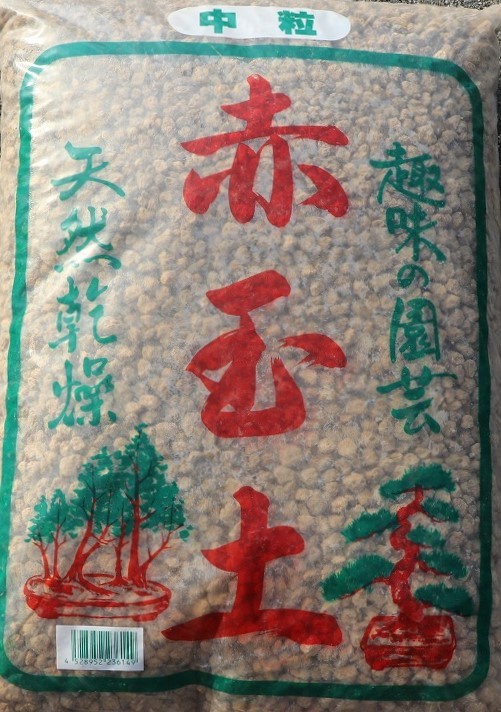 中粒
趣味の園芸
赤玉土
天然乾燥
4528952236149